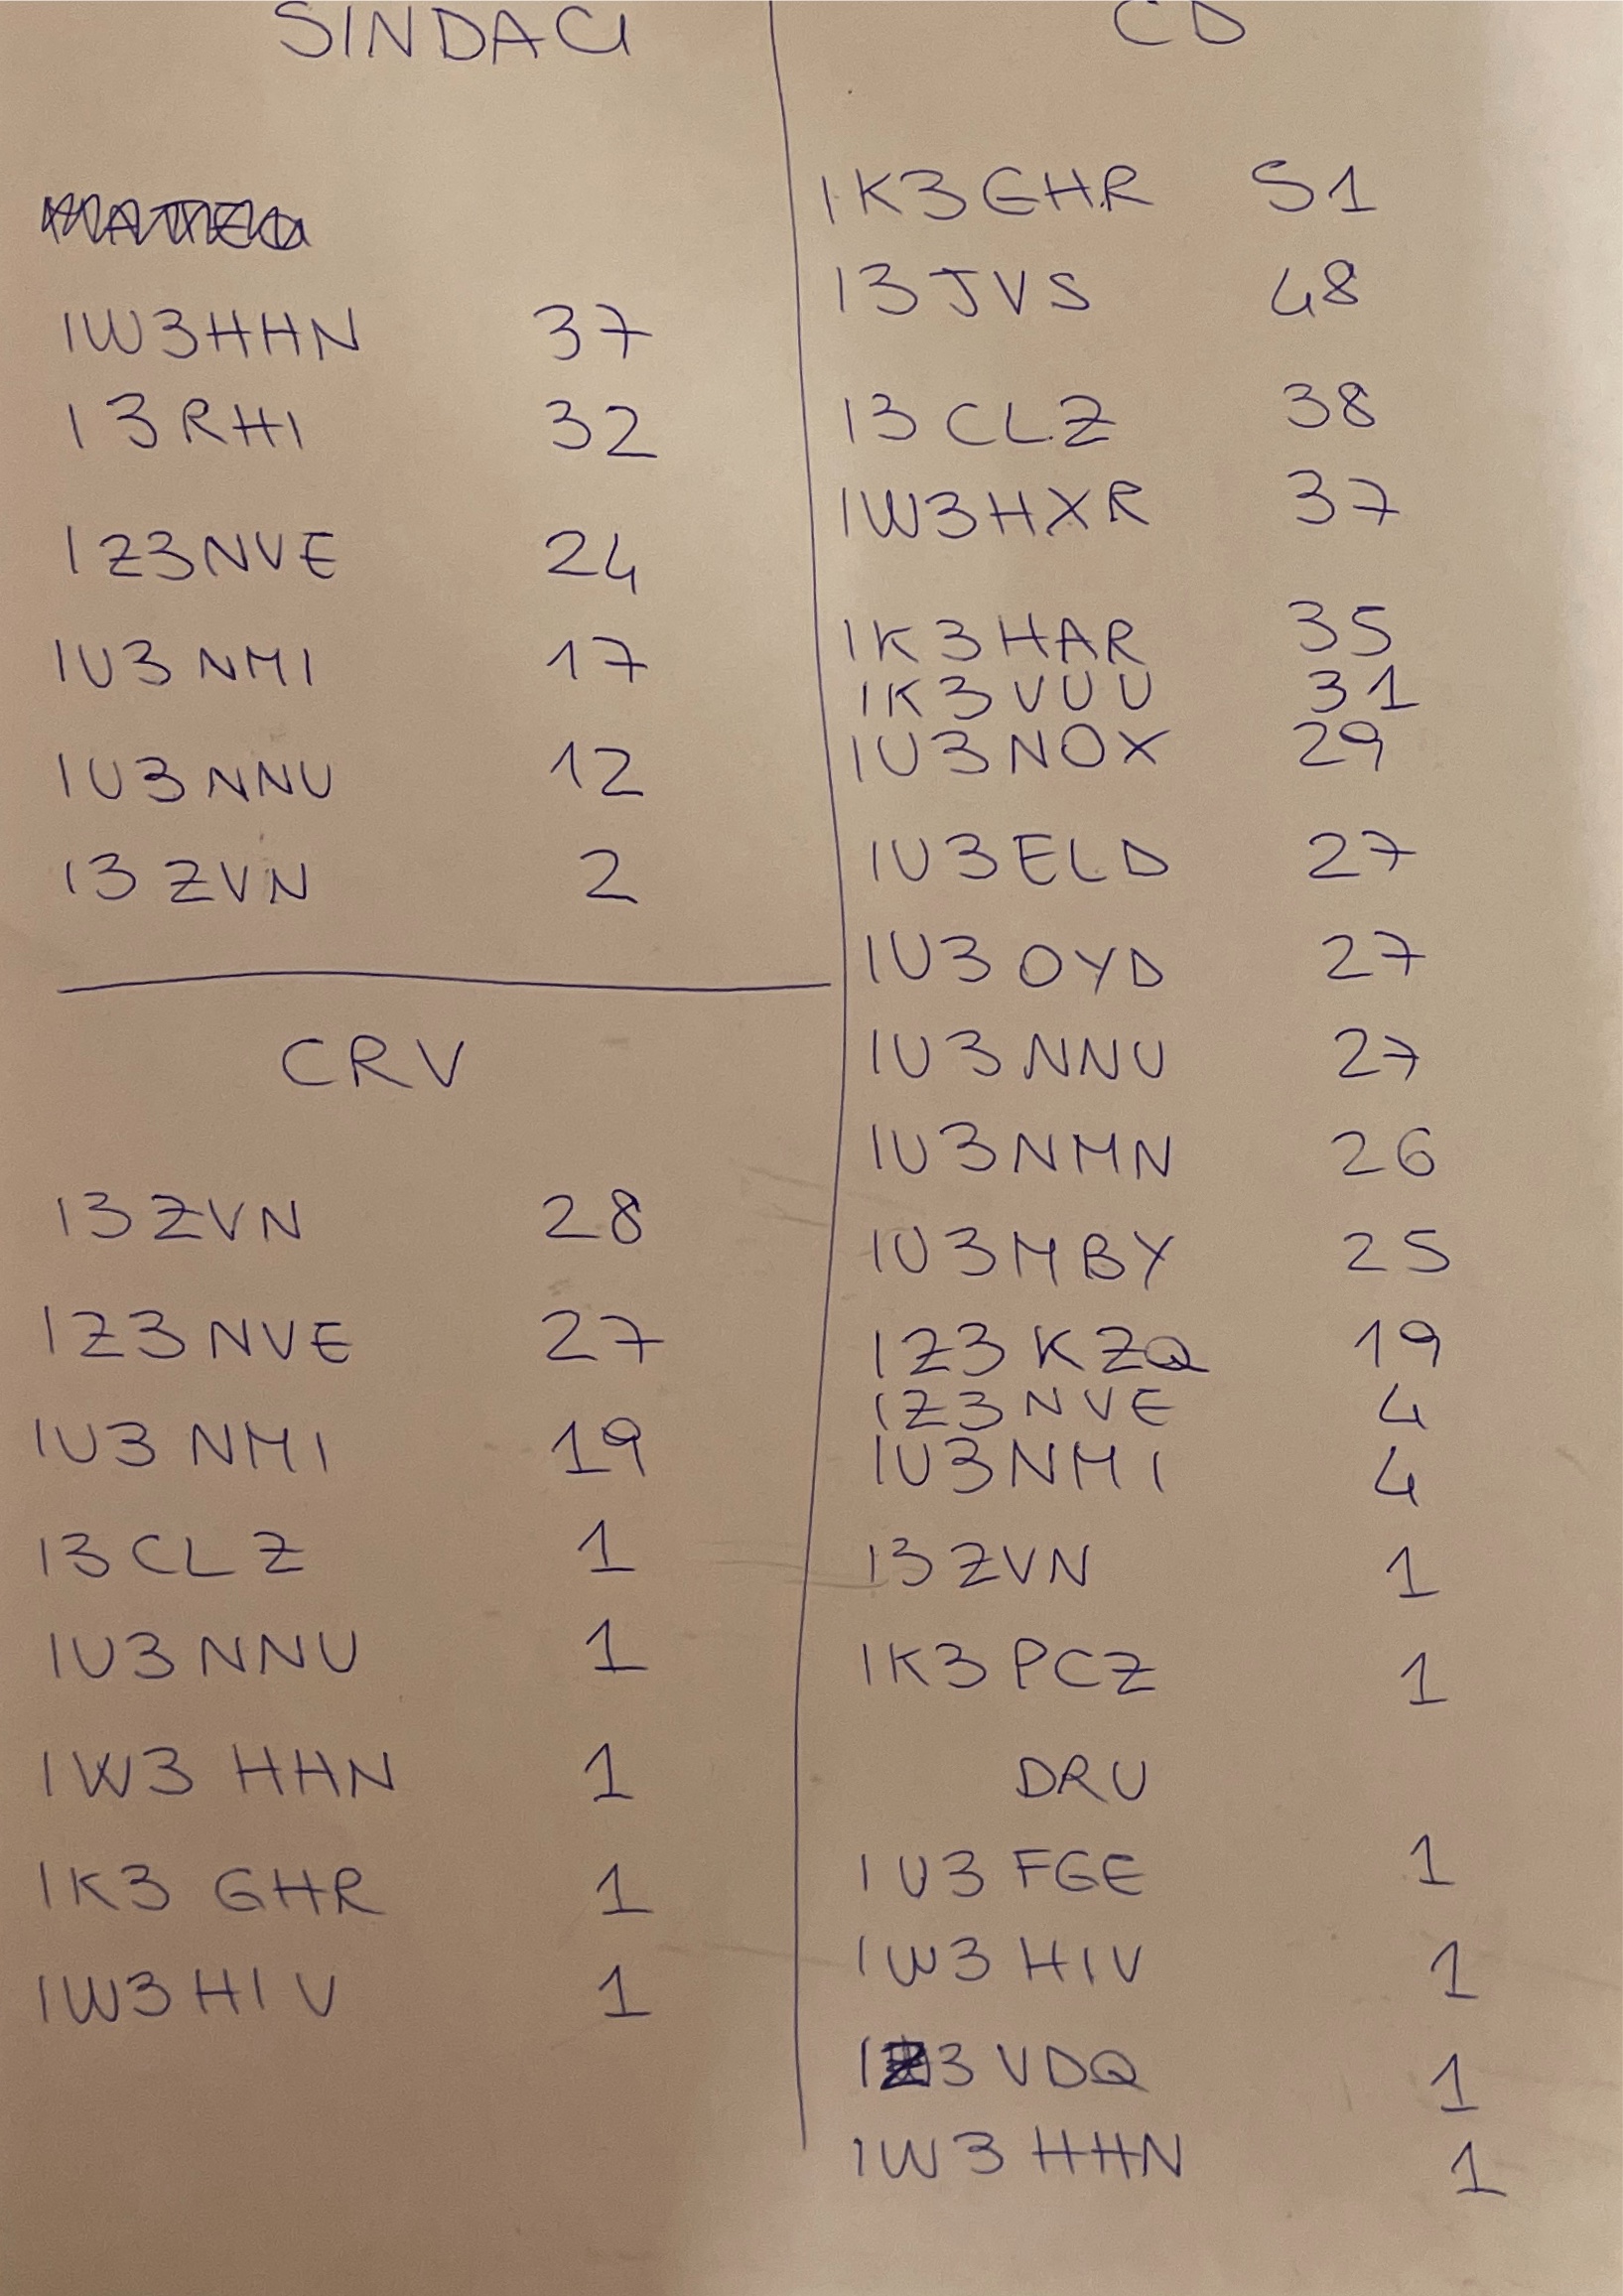 SINDACI
IW3HHN 37
I3RHI 32
IZ3NVE 24
IU3NMI 17
IU3NNU 12
I3ZVN 2
CRV
I3ZVN 28
IZ3NVE 27
IU3NMI 19
I3CLZ 1
IU3NNU 1
IW3HHN 1
IK3GHR 1
IW3HIV 1
CD
IK3GHR 51
I3JVS 48
I3CLZ 38
IW3HXR 37
IK3HAR 35
IK3VUU 31
IU3NOX 29
IU3ELD 27
IU3OYD 27
IU3NNU 27
IU3NMN 26
IU3MBY 25
IZ3KZQ 19
IZ3NVE 4
IU3NMI 4
I3ZVN 1
IK3PCZ 1
DRU
IU3FGE 1
IW3HIV 1
IZ3VDQ 1
IW3HHN 1